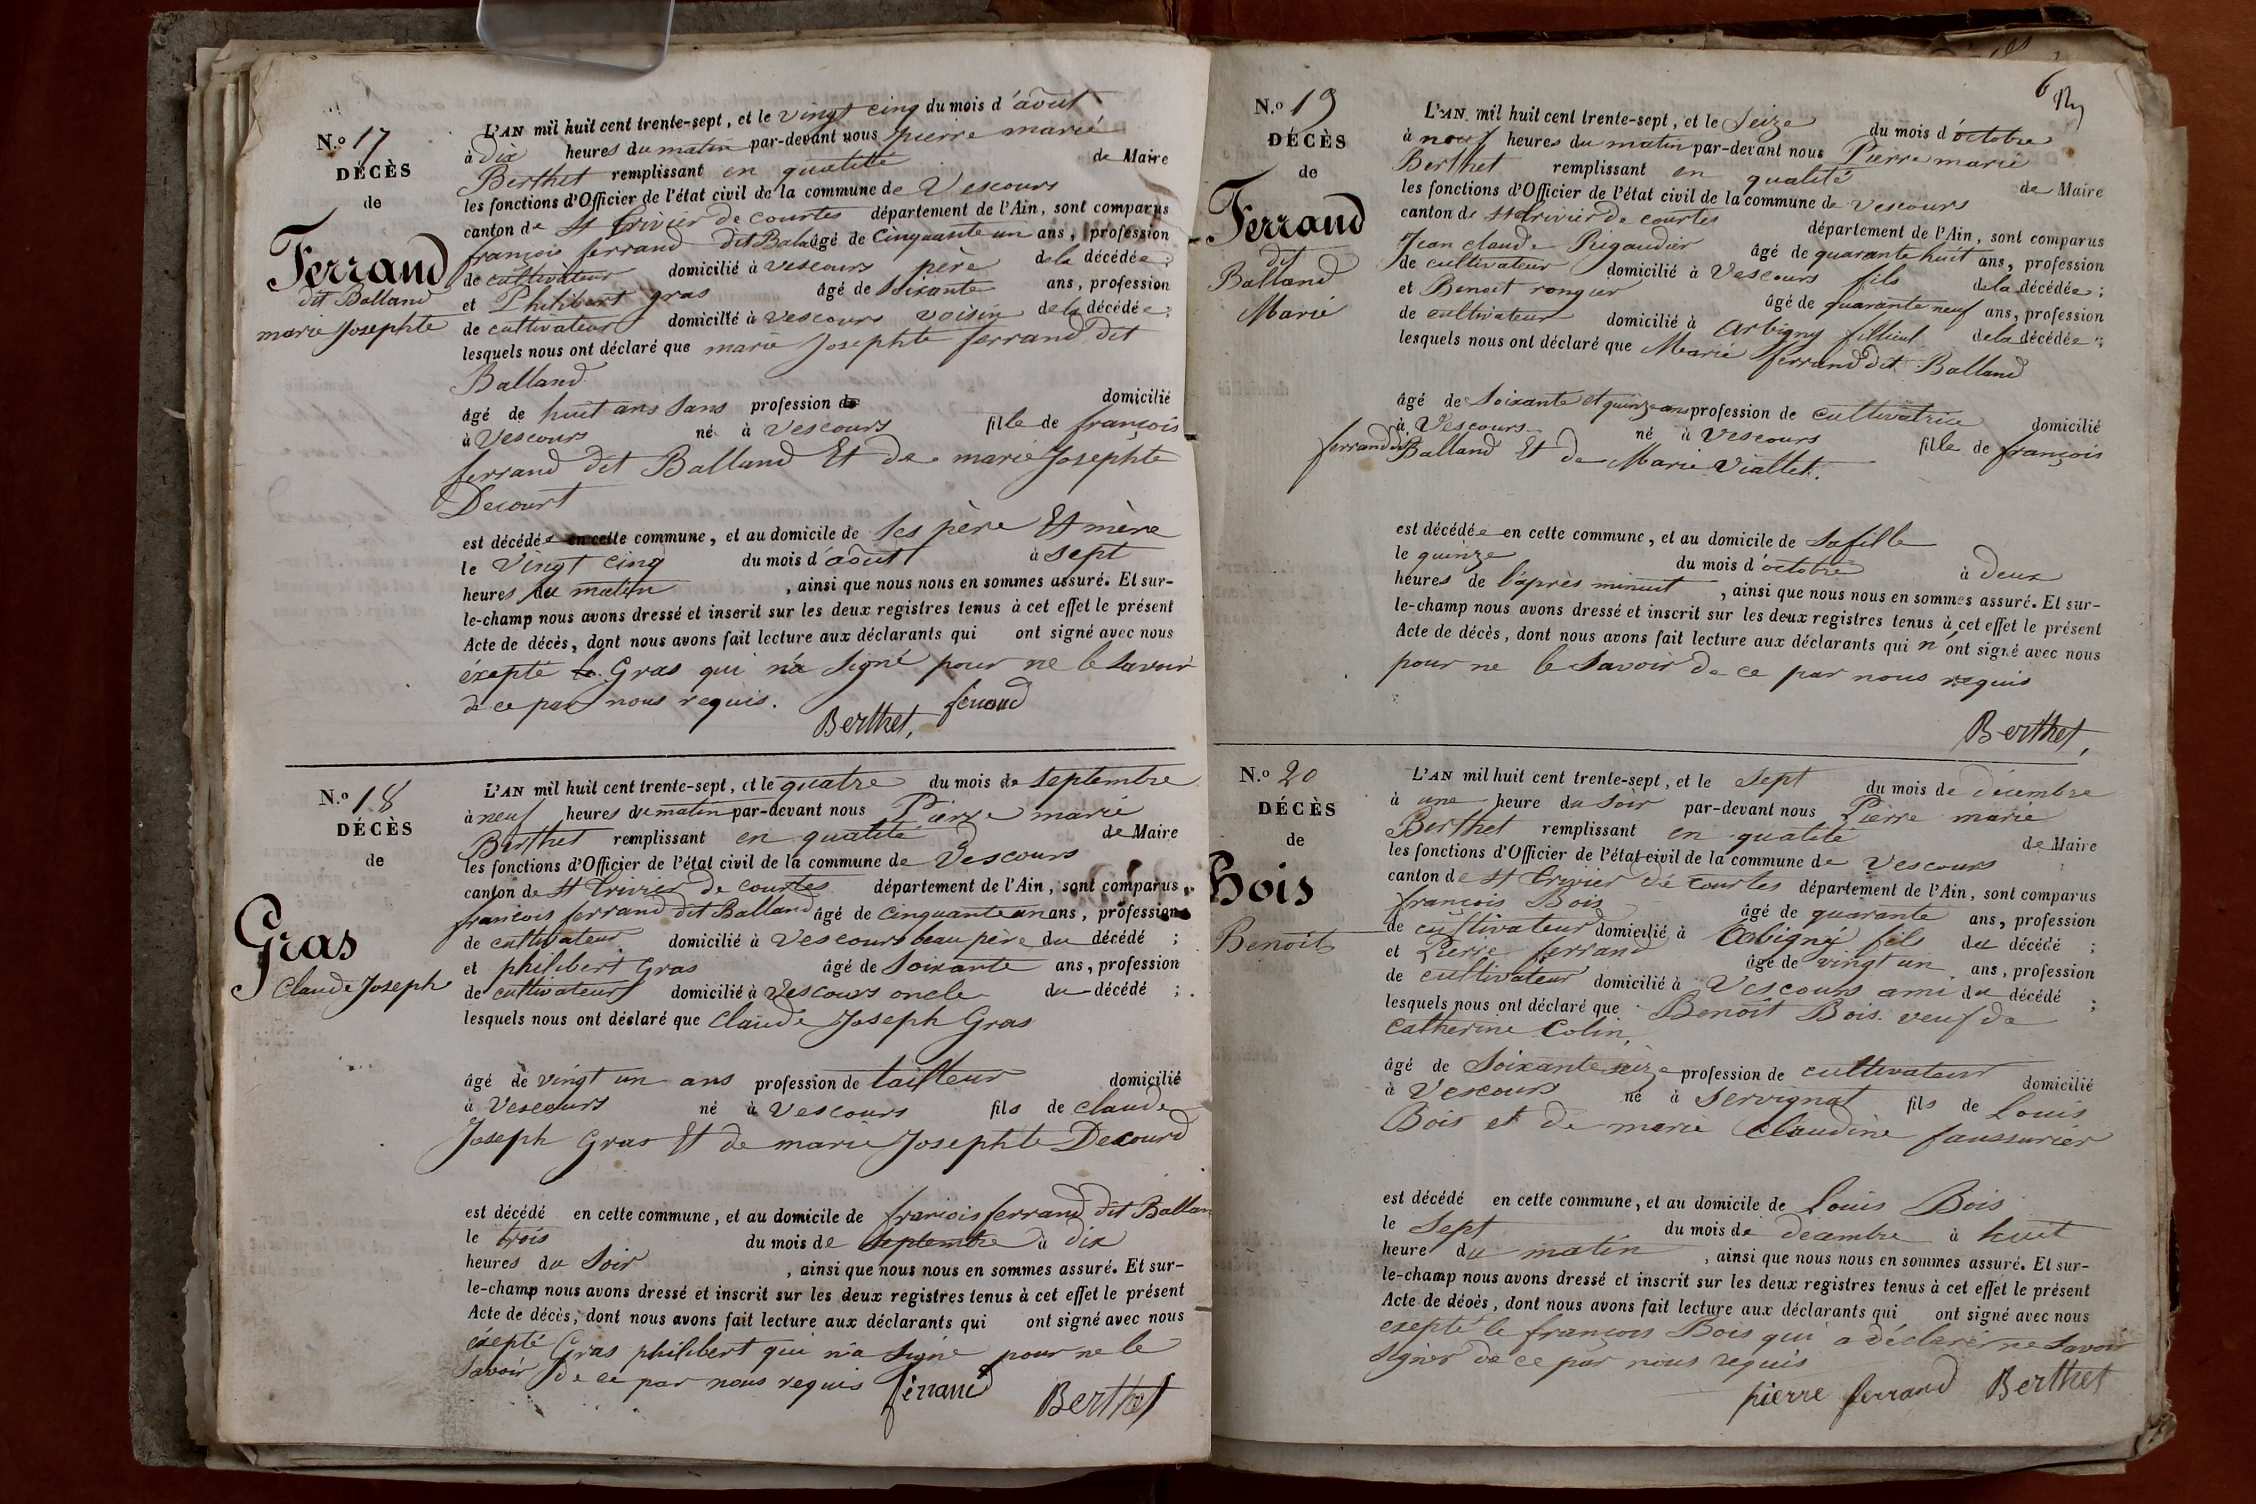 N.º 17
DÉCÈS
de
Ferrand
dit Balland
marie Josephte
L'AN mil huit cent trente-sept, et le vingt cinq du mois d'août
à dix heures du matin par-devant nous pierre marie
Berthet remplissant en qualitte de Maire
les fonctions d'Officier de l'état civil de la commune de Vescours
canton de St Trivier de courtes département de l'Ain, sont comparus
françois ferrand dit Balad âgé de Cinquante un ans, profession
de cultivateur domicilié à vescours père de la décédée;
et Philibert gras âgé de Soixante ans, profession
de cultivateur domicilié à vescours voisin de la décédée;
lesquels nous ont déclaré que marie Josephte ferrand dit
Balland
âgé de huit ans Sans profession de domicilié
à Vescours né à Vescours fille de françois
ferrand dit Balland Et de marie Josephte
Decourt
est décédée en cette commune, et au domicile de Ses père Et mère
le Vingt cinq du mois d'août à Sept
heures du matin, ainsi que nous nous en sommes assuré. Et sur-
le-champ nous avons dressé et inscrit sur les deux registres tenus à cet effet le présent
Acte de décès, dont nous avons fait lecture aux déclarants qui ont signé avec nous
éxepté le Gras qui n'a Signé pour ne le Savoir
de ce par nous requis.
Berthet, ferrand
N.º 18
DÉCÈS
de
Gras
Claude Joseph
L'AN mil huit cent trente-sept, et le quatre du mois de Septembre
à neuf heures du matin par-devant nous Pierre marie
Berthet remplissant en qualité de Maire
les fonctions d'Officier de l'état civil de la commune de Vescours
canton de St Trivier de courtes département de l'Ain, sont comparus
françois ferrand dit Balland âgé de Cinquante un ans, profession
de cultivateur domicilié à Vescours beau père du décédé;
et philibert Gras âgé de Soixante ans, profession
de cultivateur domicilié à Vescours oncle du décédé;
lesquels nous ont déclaré que Claude Joseph Gras
âgé de vingt un ans profession de tailleur domicilié
à Vescours né à Vescours fils de claude
Joseph Gras Et de marie Josephte Decourd
est décédé en cette commune, et au domicile de françois ferrand dit Ballan
le trois du mois de Septembre à dix
heures du Soir, ainsi que nous nous en sommes assuré. Et sur-
le-champ nous avons dressé et inscrit sur les deux registres tenus à cet effet le présent
Acte de décès, dont nous avons fait lecture aux déclarants qui ont signé avec nous
éxepté Gras philibert qui n'a Signé pour ne le
Savoir de ce par nous requis ferrand Berthet
6
N.º 19
DÉCÈS
de
Ferrand
dit
Balland
Marie
L'AN mil huit cent trente-sept, et le Seize du mois d'octobre
à neuf heures du matin par-devant nous Pierre marie
Berthet remplissant en qualité de Maire
les fonctions d'Officier de l'état civil de la commune de Vescours
canton de St Trivier de courtes département de l'Ain, sont comparus
Jean claude Rigaudier âgé de quarante huit ans, profession
de cultivateur domicilié à Vescours fils de la décédée;
et Benoit rongier âgé de quarante neuf ans, profession
de cultivateur domicilié à Arbigny fillieul de la décédée;
lesquels nous ont déclaré que Marie ferrand dit Balland
âgé de Soixante et quinze ans profession de cultivatrice domicilié
à Vescours né à Vescours fille de françois
ferrand dit Balland Et de Marie Viallet.
est décédée en cette commune, et au domicile de Sa fille
le quinze du mois d'octobre à deux
heures de l'après minuit, ainsi que nous nous en sommes assuré. Et sur-
le-champ nous avons dressé et inscrit sur les deux registres tenus à cet effet le présent
Acte de décès, dont nous avons fait lecture aux déclarants qui n'ont signé avec nous
pour ne le Savoir de ce par nous requis
Berthet,
N.º 20
DÉCÈS
de
Bois
Benoit
L'AN mil huit cent trente-sept, et le Sept du mois de décembre
à une heure du Soir par-devant nous Pierre marie
Berthet remplissant en qualité de Maire
les fonctions d'Officier de l'état civil de la commune de Vescours
canton de St Trivier de Courtes département de l'Ain, sont comparus
françois Bois âgé de quarante ans, profession
de cultivateur domicilié à Arbigny fils du décédé;
et Pierre ferrand âgé de vingt un ans, profession
de cultivateur domicilié à Vescours ami du décédé;
lesquels nous ont déclaré que Benoit Bois veuf de
Catherine Colin,
âgé de Soixante seize profession de cultivateur domicilié
à Vescours né à Servignat fils de Louis
Bois et de marie Claudine faussurier
est décédé en cette commune, et au domicile de Louis Bois
le Sept du mois de décembre à huit
heure du matin, ainsi que nous nous en sommes assuré. Et sur-
le-champ nous avons dressé et inscrit sur les deux registres tenus à cet effet le présent
Acte de décès, dont nous avons fait lecture aux déclarants qui ont signé avec nous
exepté le françois Bois qui a déclaré ne Savoir
Signer de ce par nous requis
pierre ferrand Berthet